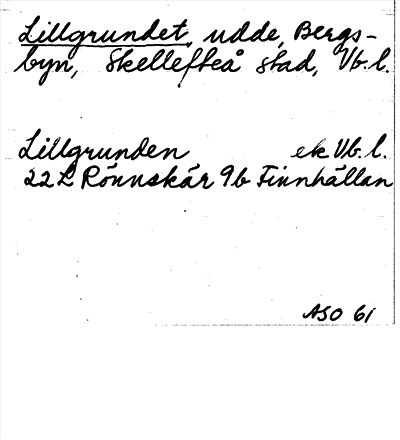 Lillgrundet, udde, Bergs-
byn, Skellefteå stad, Vb. l.
Lillgrunden ek Vb. l.
22 L Rönnskär 9b Finnhällan
ASO 61